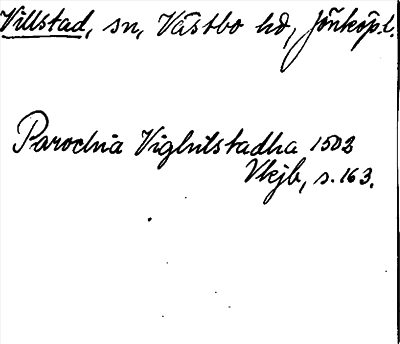 Villstad, sn, Västbo hd, Jönköp.l.
Parochia Vighulstadha 1502
Vkjb, s. 163.